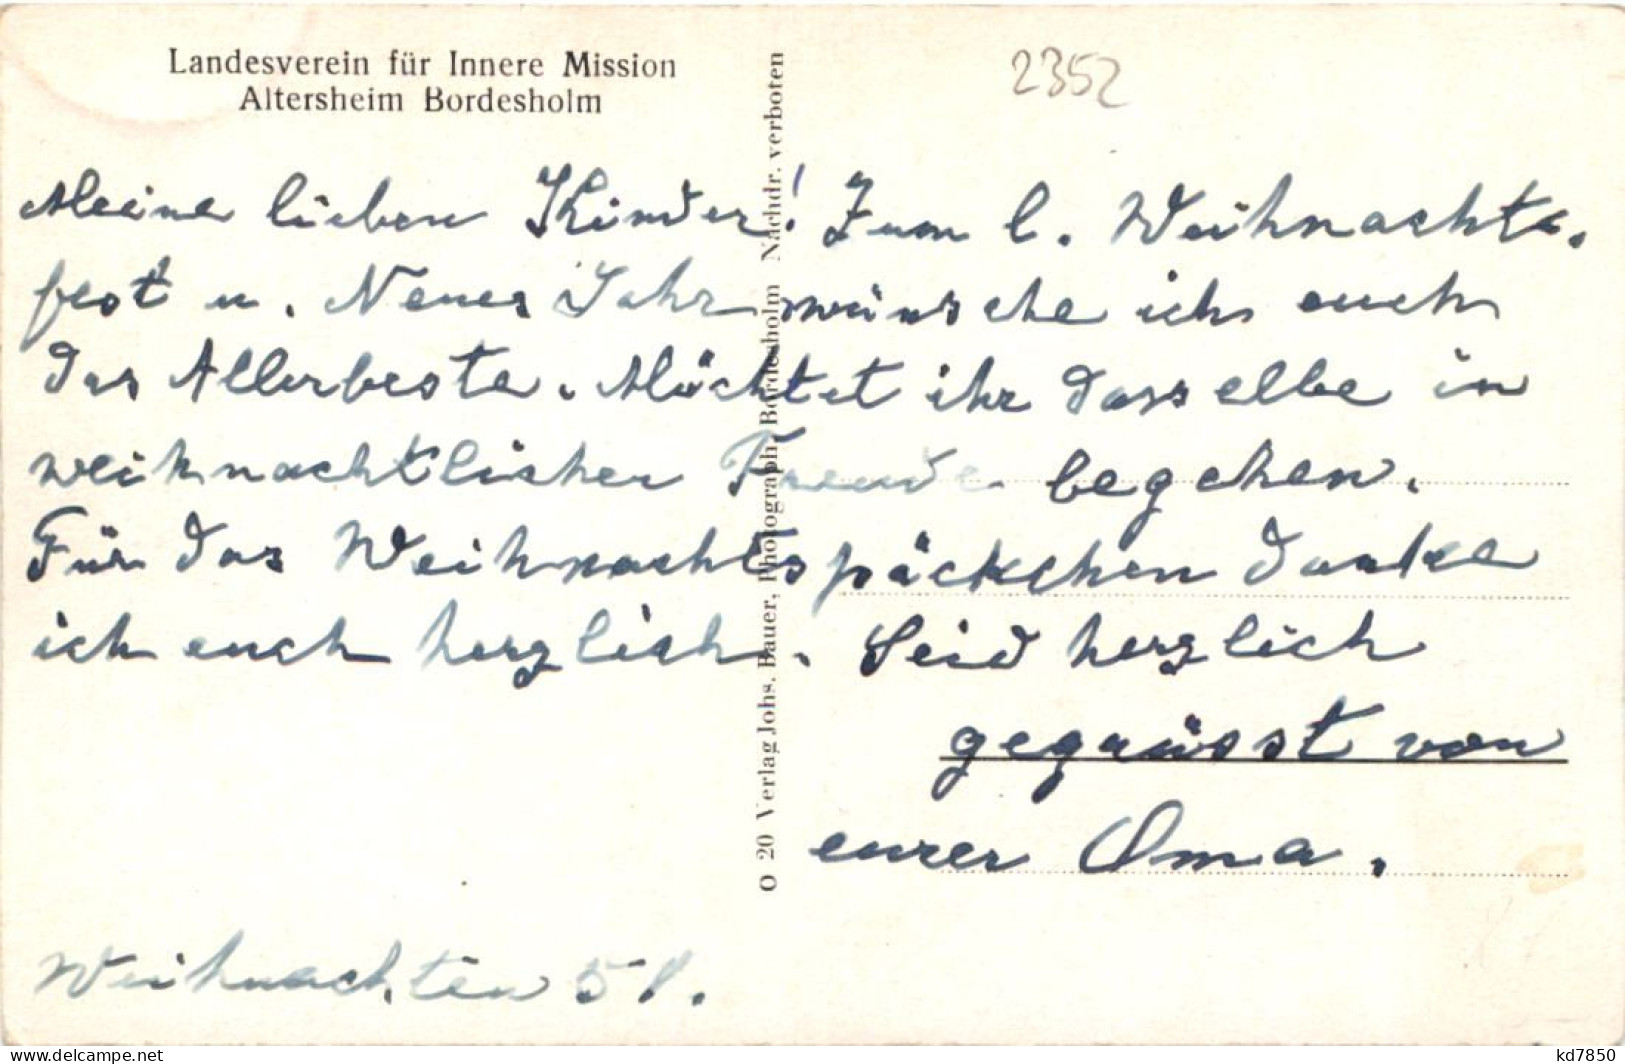 Landesverein für Innere Mission
Altersheim Bordesholm
2352
Meine lieben Kinder! Zum l. Weihnachts-
fest u. Neues Jahr wünsche ich euch
das Allerbeste. Möchtet ihr dasselbe in
weihnachtlicher Freude begehen.
Für das Weihnachtspäckchen danke
ich euch herzlich. Seid herzlich
gegrüsst von
eurer Oma.
Weihnachten 51.
O 20 Verlag Johs. Bauer, Photograph, Bordesholm Nachdr. verboten
kd7850